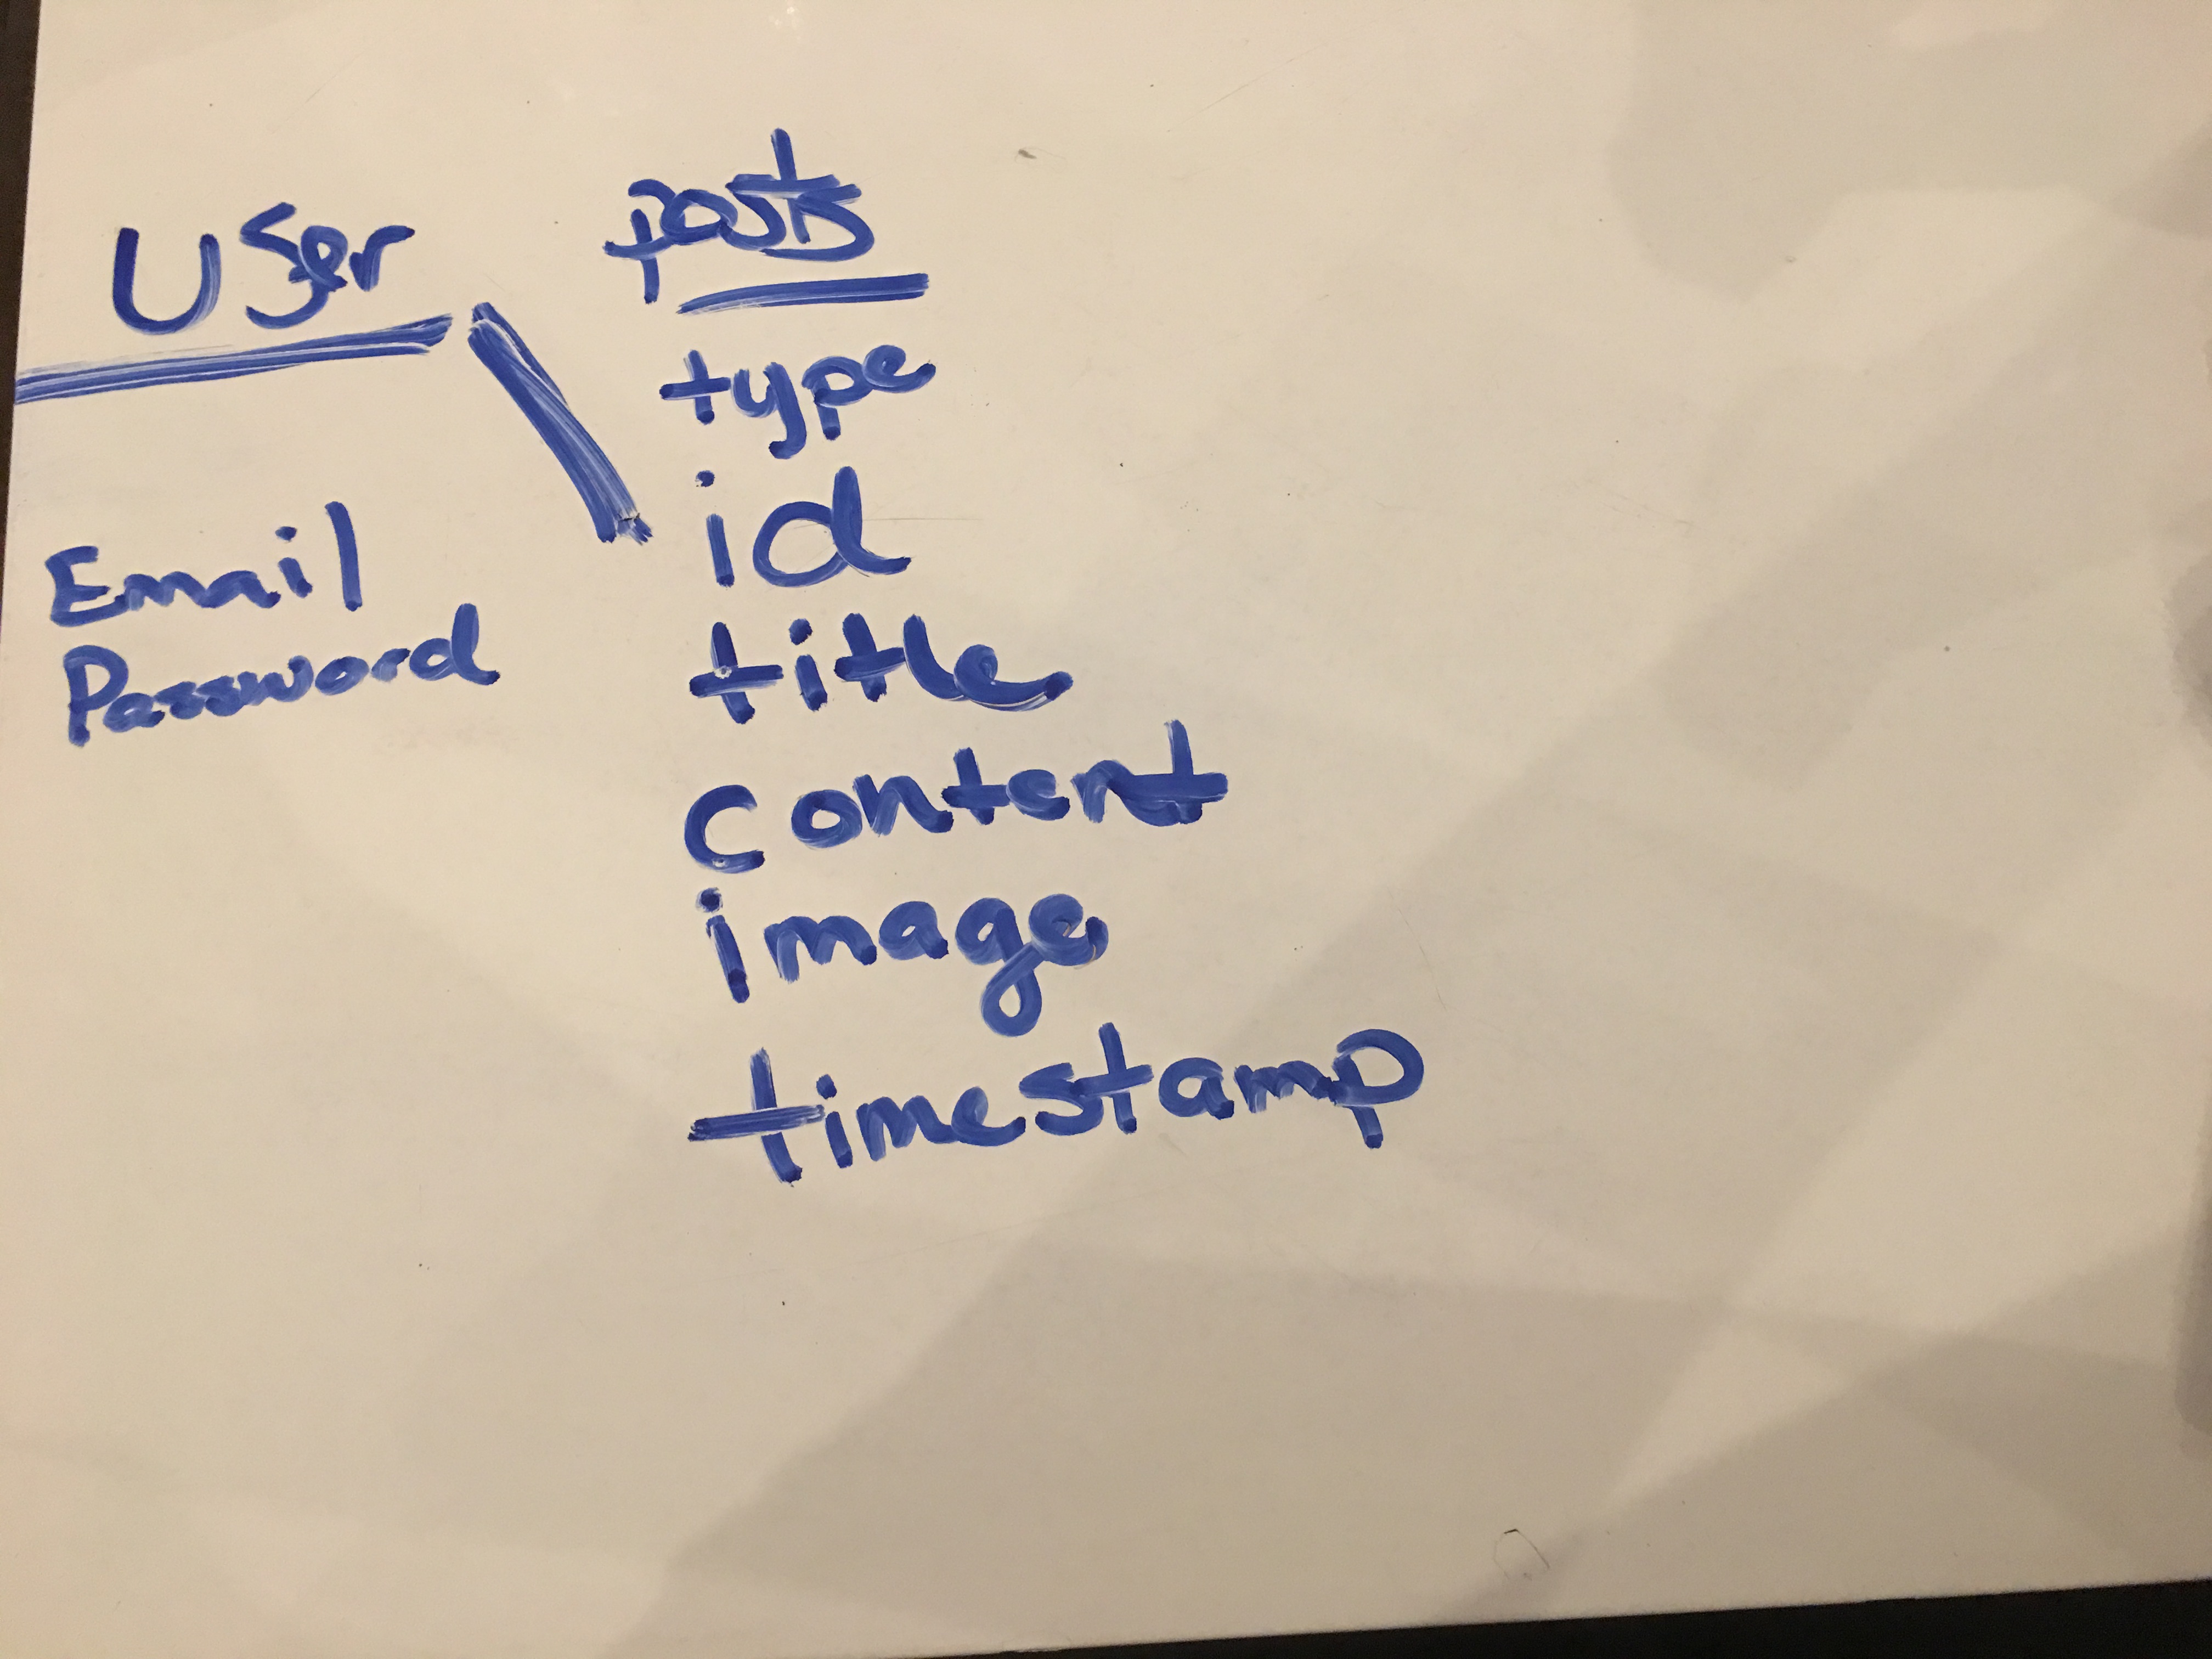 User
Email
Password
posts
type
id
title
content
image
timestamp